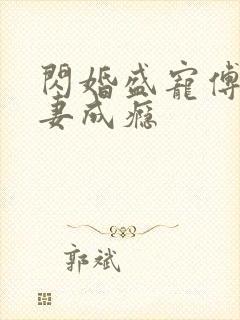 閃婚盛寵傅
妻成瘾
郭斌